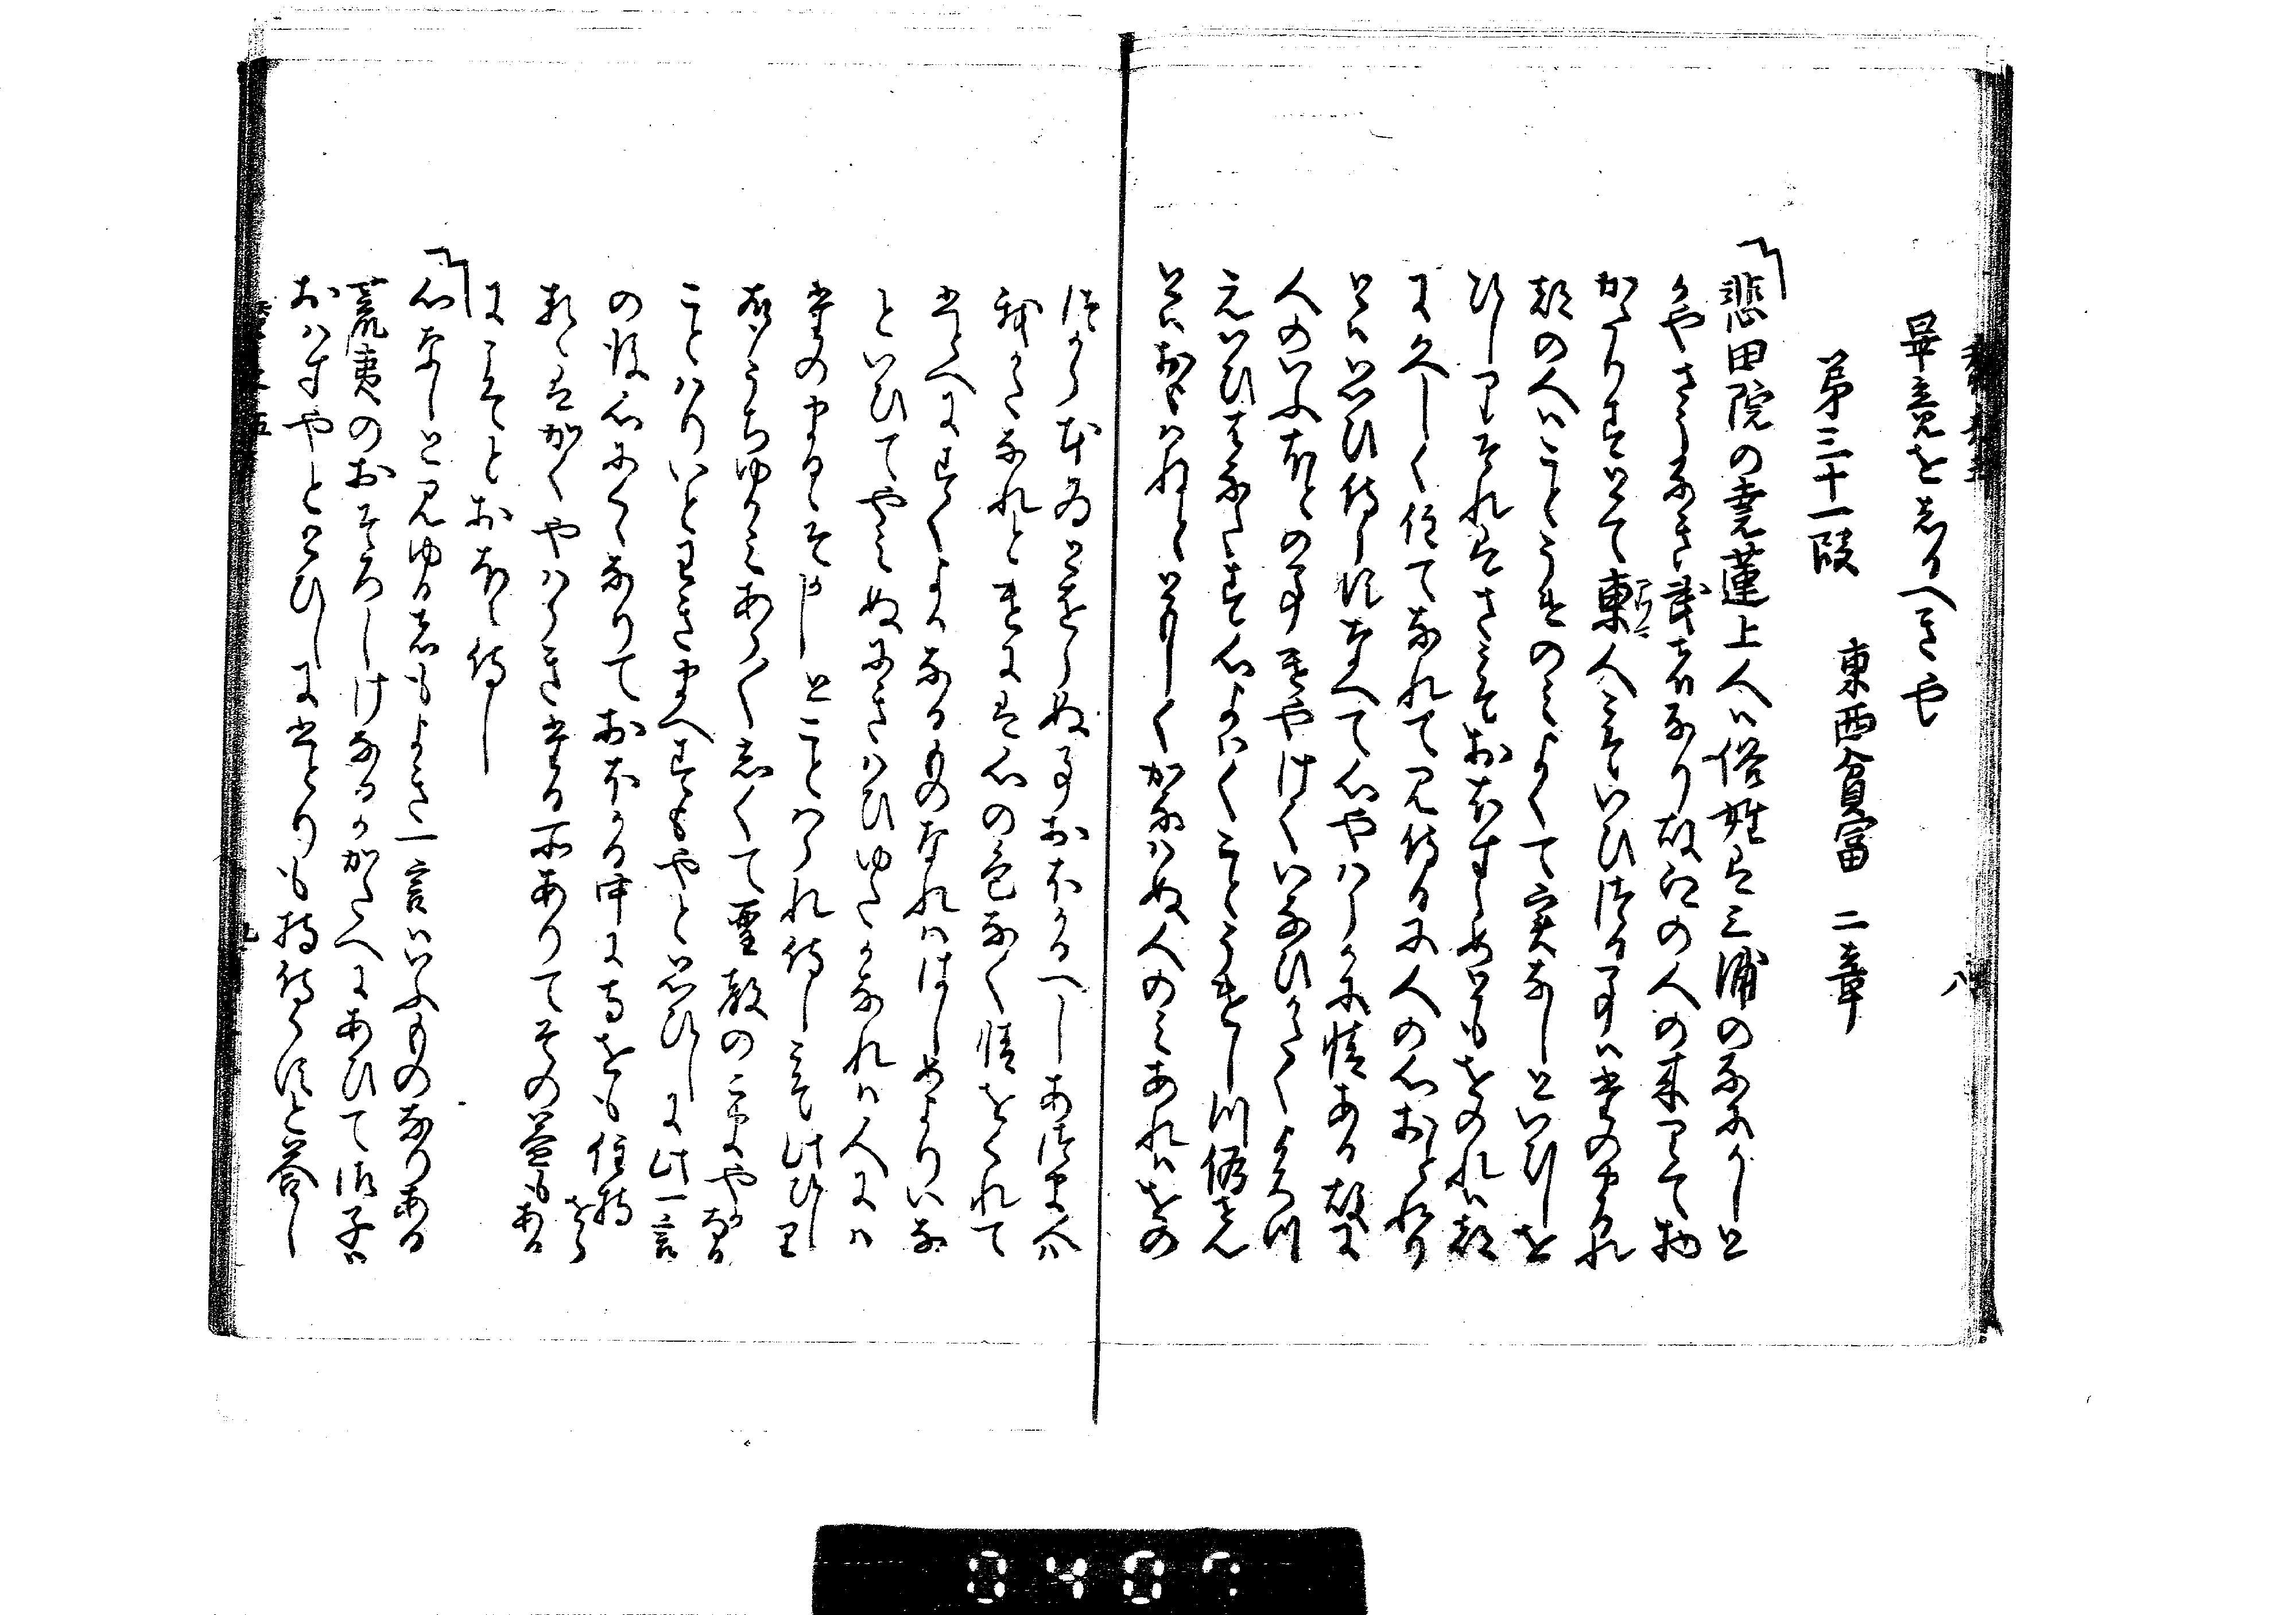 畢竟をしるへき也
第三十一段　東西貧富　二章
悲田院の尭蓮上人ハ俗姓は三浦のなにかしと
かやさうなき武者なり故郷の人の来りて物
かたりすとて東人こそいひつる事ハたのまるれ
都の人ハことうけのみよくて実なしといひしを
ひしりそれはさこそおほすらめともをのれハ都
に久しく住てなれて見侍るに人の心おとれり
とハ思ひ侍らすなへて心やハらかに情ある故に
人のいふほとの事けやけくいなひかたくよろつ
えいひはなたす心よハくことうけしつ偽せん
とハおもハねとともしくかなハぬ人のみあれハをの
つから本意とをらぬ事おほかるへしあつま人ハ
我かたなれとけには心の色なく情をくれて
ひとへにすくよかなるものなれハはしめよりいな
といひてやみぬにきハひゆたかなれハ人にハ
たのまるゝそかしとことハられ侍しこそ此ひしり
声うちゆかみあら〱しくて聖教のこまやかなる
ことハりいとわきまへすもやと思ひしに此一言
の後心にくゝなりておほかる中に寺をも住持
せらるゝはかくやハらきたる所ありてその益もある
にこそとおほえ侍し
心なしと見ゆるものもよき一言ハいふものなりある
荒夷のおそろしけなるかかたへにあひて御子ハ
おハすやととひしにひとりも持侍らすと答し